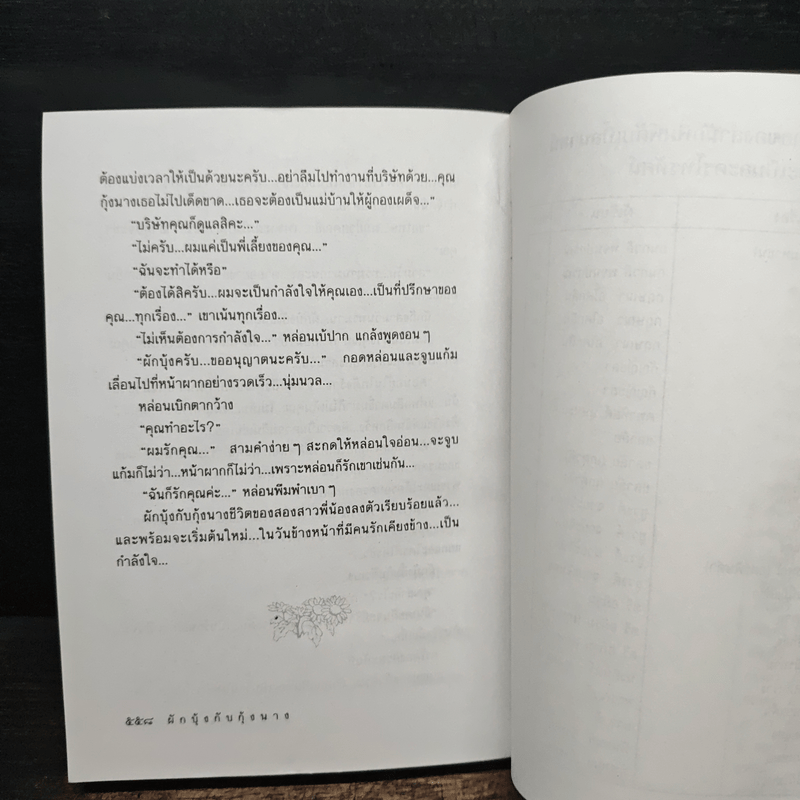 ต้องแบ่งเวลาให้เป็นด้วยนะครับ...อย่าลืมไปทำงานที่บริษัทด้วย...คุณ
กุ้งนางเธอไม่ไปเด็ดขาด...เธอจะต้องเป็นแม่บ้านให้ผู้กองเผด็จ..."
"บริษัทคุณก็ดูแลสิคะ..."
"ไม่ครับ...ผมแค่เป็นพี่เลี้ยงของคุณ..."
"ฉันจะทำได้หรือ"
"ต้องได้สิครับ...ผมจะเป็นกำลังใจให้คุณเอง...เป็นที่ปรึกษาของ
คุณ...ทุกเรื่อง..." เขาเน้นทุกเรื่อง...
"ไม่เห็นต้องการกำลังใจ..." หล่อนเบ้ปาก แกล้งพูดงอนๆ
"ผักบุ้งครับ...ขออนุญาตนะครับ..." กอดหล่อนและจูบแก้ม
เลื่อนไปที่หน้าผากอย่างรวดเร็ว...นุ่มนวล...
หล่อนเบิกตากว้าง
"คุณทำอะไร?"
"ผมรักคุณ..." สามคำง่ายๆ สะกดให้หล่อนใจอ่อน...จะจูบ
แก้มก็ไม่ว่า...หน้าผากก็ไม่ว่า...เพราะหล่อนก็รักเขาเช่นกัน...
"ฉันก็รักคุณค่ะ..." หล่อนพึมพำเบาๆ
ผักบุ้งกับกุ้งนางชีวิตของสองสาวพี่น้องลงตัวเรียบร้อยแล้ว...
และพร้อมจะเริ่มต้นใหม่...ในวันข้างหน้าที่มีคนรักเคียงข้าง...เป็น
กำลังใจ...
๕๕๘ ผักบุ้งกับกุ้งนาง